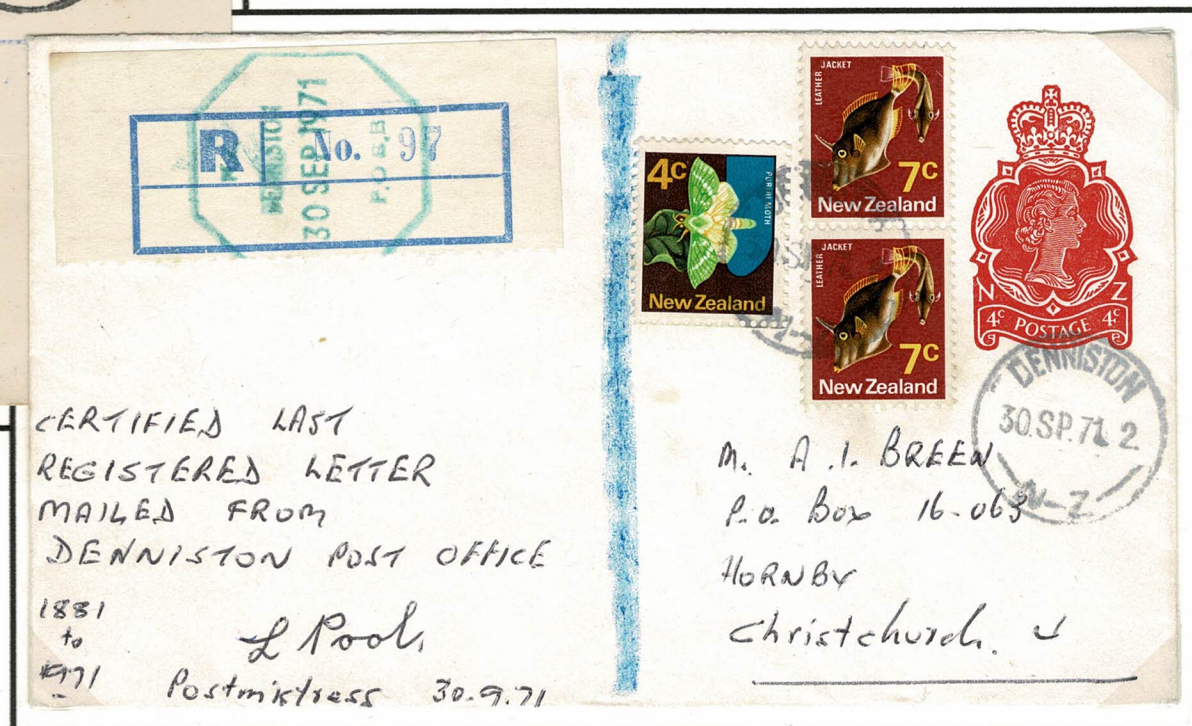 R No. 97
DENNISTON
30 SEP 1971
P.O. & B
4c
PURIRI MOTH
New Zealand
LEATHER JACKET
7c
New Zealand
LEATHER JACKET
7c
New Zealand
N Z
4c POSTAGE 4c
DENNISTON
30.SP.71 2
N-Z
CERTIFIED LAST
REGISTERED LETTER
MAILED FROM
DENNISTON POST OFFICE
1881
to
1971
L Pool
Postmistress 30.9.71
M. A.I. BREEN
P.O. Box 16-063
HORNBY
Christchurch.